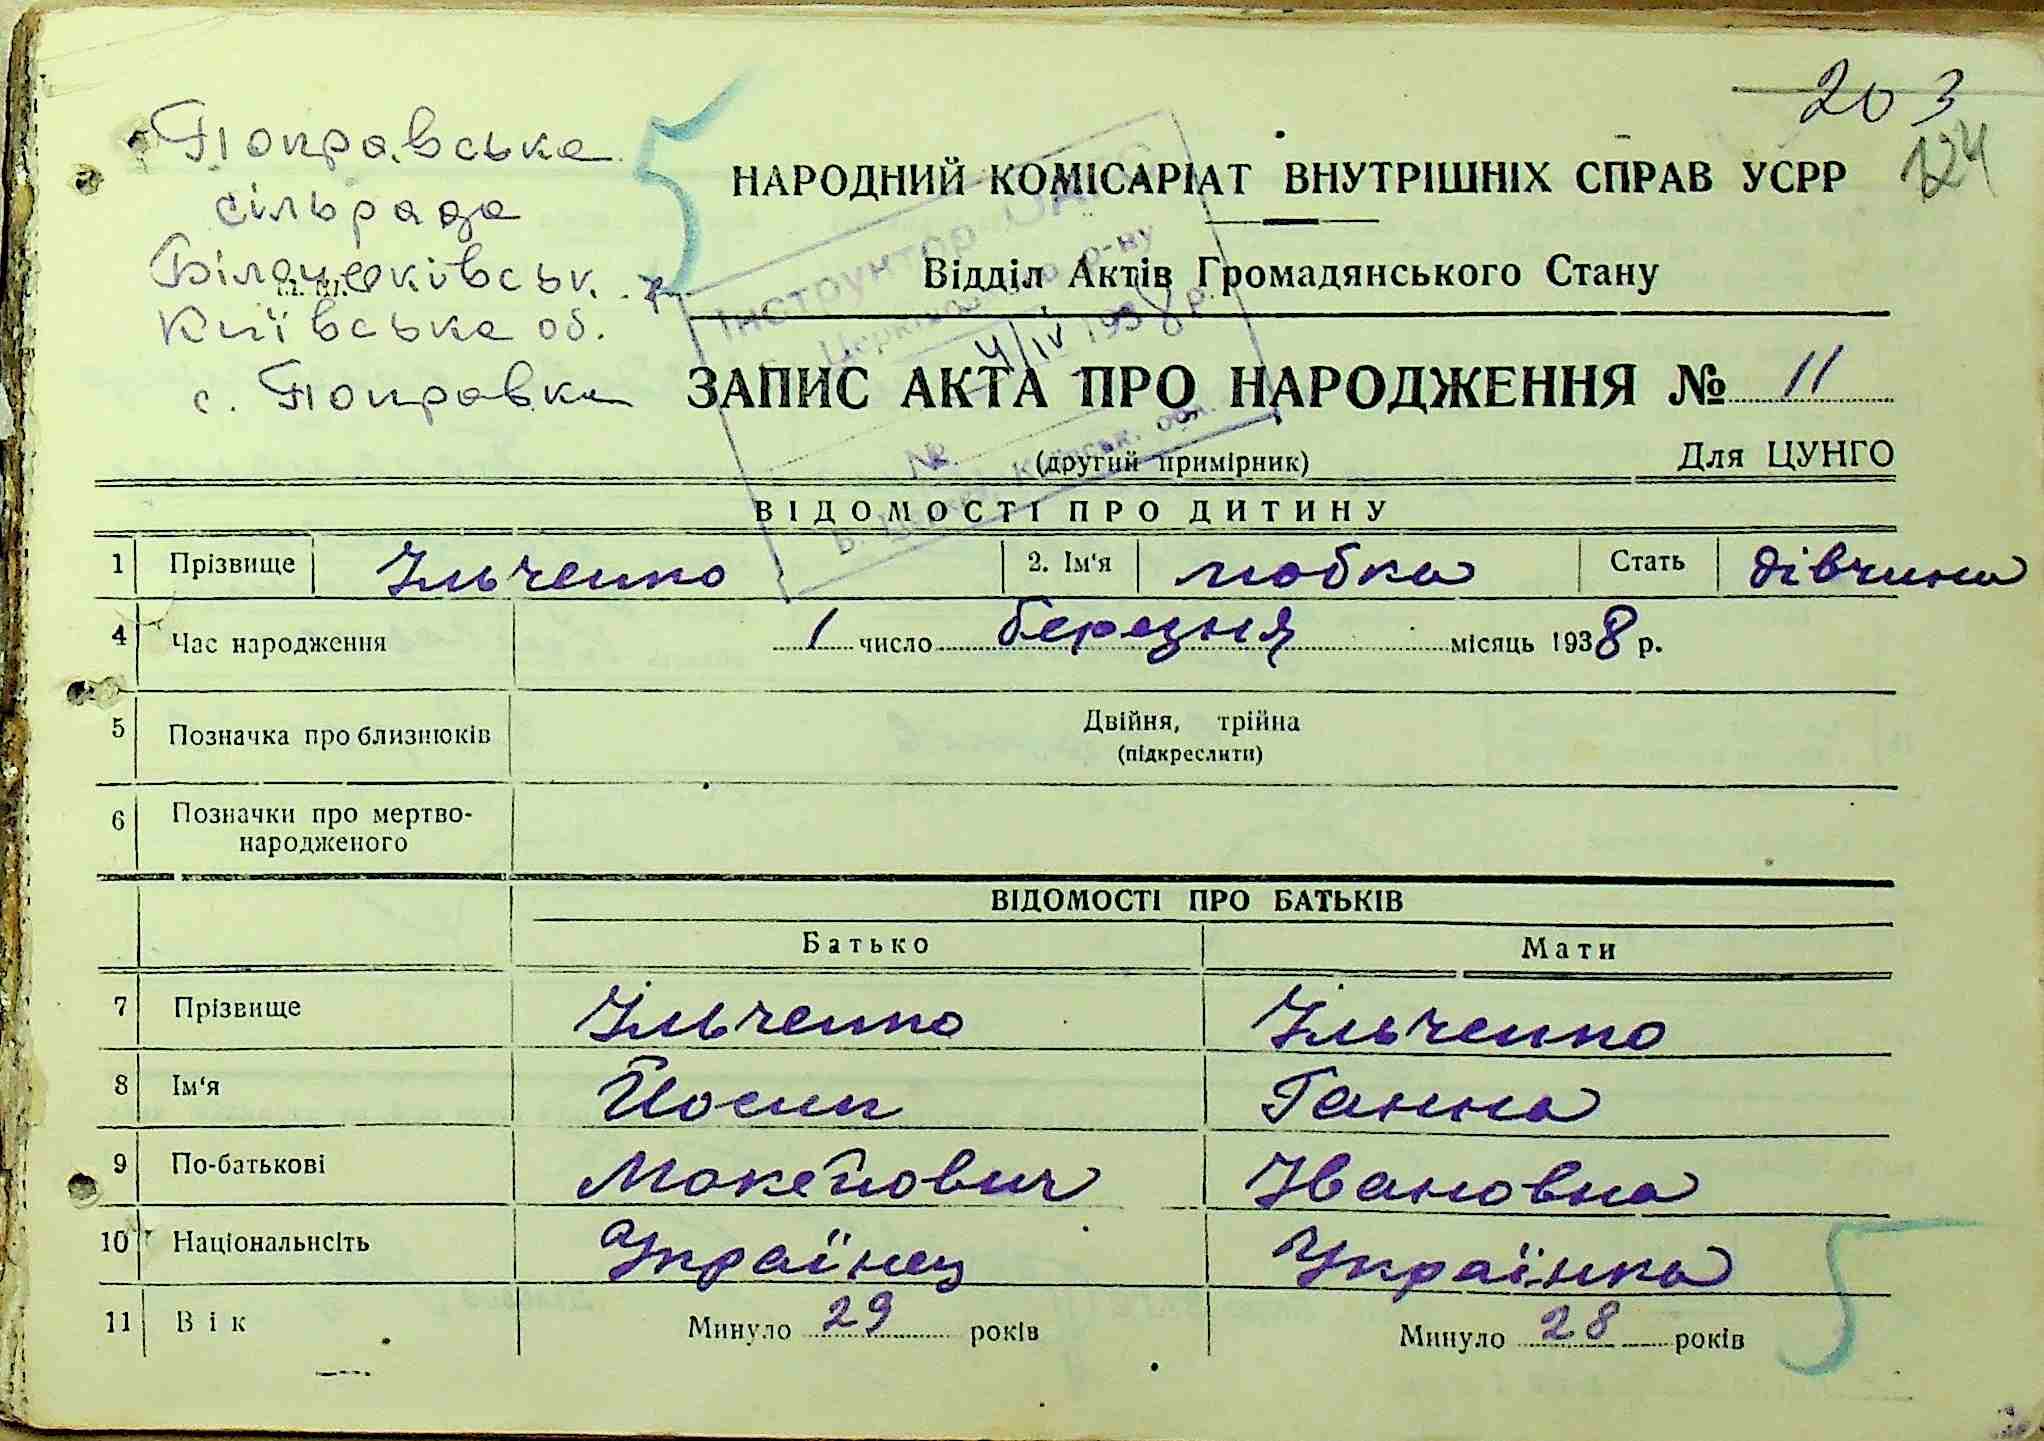 203
124
Поправська
сільрада
Білоцерківськ. р
Київська об.
с. Поправка
5
НАРОДНИЙ КОМІСАРІАТ ВНУТРІШНІХ СПРАВ УСРР
Відділ Актів Громадянського Стану
Інструктор ЗАГС
Церківського р-ну
4/IV 1938 р.
№
Б. Церква, Київськ. обл.
ЗАПИС АКТА ПРО НАРОДЖЕННЯ № 11
(другий примірник) Для ЦУНГО
ВІДОМОСТІ ПРО ДИТИНУ
1 Прізвище Ільченко 2. Ім'я Любка Стать дівчина
4 Час народження 1 число березня місяць 1938 р.
5 Позначка про близнюків Двійня, трійна
(підкреслити)
6 Позначки про мертво-
народженого
ВІДОМОСТІ ПРО БАТЬКІВ
Батько Мати
7 Прізвище Ільченко Ільченко
8 Ім'я Йосип Ганна
9 По-батькові Мокейович Івановна
10 Національнсіть Українец Українка
11 Вік Минуло 29 років Минуло 28 років
5